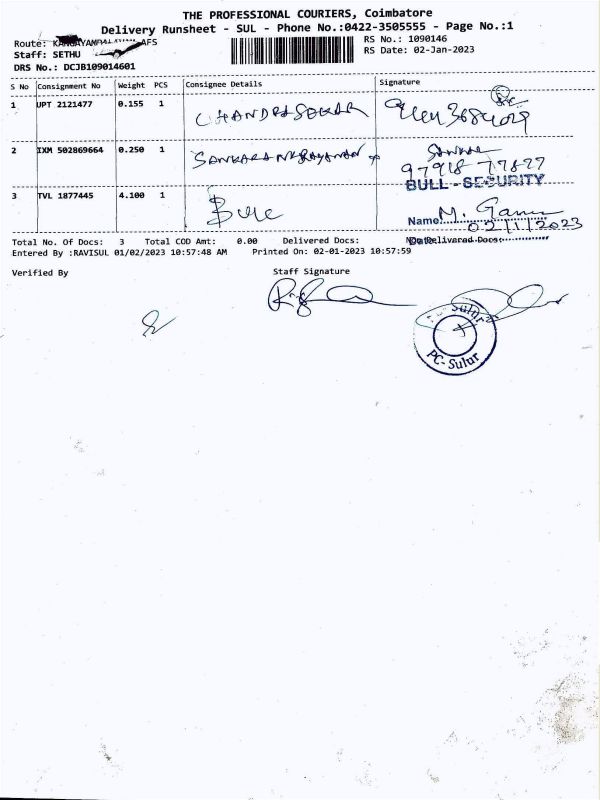 THE PROFESSIONAL COURIERS, Coimbatore
Delivery Runsheet - SUL - Phone No.:0422-3505555 - Page No.:1
Route: AFS RS No.: 1090146
Staff: SETHU RS Date: 02-Jan-2023
DRS No.: DCJB109014601
S No Consignment No Weight PCS Consignee Details Signature
1 UPT 2121477 0.155 1 CHANDRASEKAR
2 IXM 502869664 0.250 1 SANKARANARAYANAN
97918 77877
BULL - SECURITY
3 TVL 1877445 4.100 1 Bull
Name: M.
Date 02/1/2023
Total No. Of Docs: 3 Total COD Amt: 0.00 Delivered Docs: Delivered Docs:
Entered By :RAVISUL 01/02/2023 10:57:48 AM Printed On: 02-01-2023 10:57:59
Verified By Staff Signature
PC-Sulur